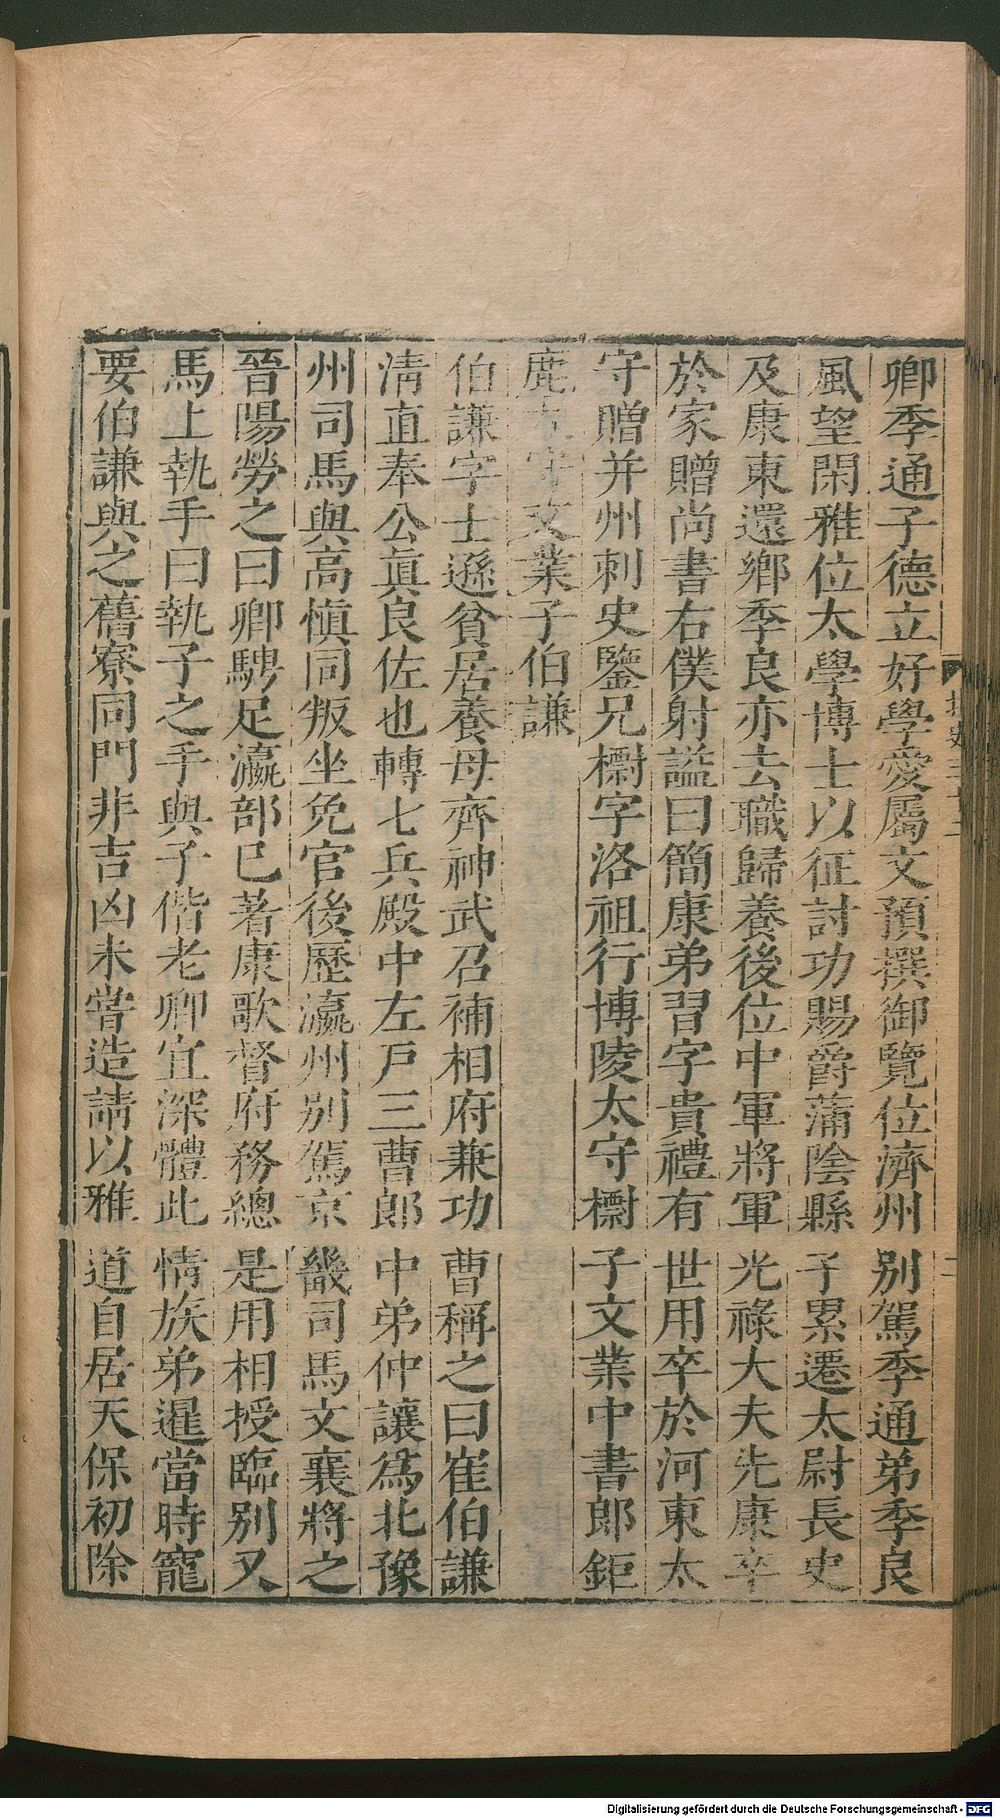 卿季通子德立好學愛屬文預撰御覽位濟州別駕季通弟季良
風望閑雅位太學博士以征討功賜爵蒲陰縣子累遷太尉長史
及康東還鄉季良亦去職歸養後位中軍將軍光祿大夫先康卒
於家贈尚書右僕射謚曰簡康弟習字貴禮有世用卒於河東太
守贈并州刺史鑒兄櫥字洛祖行博陵太守櫥子文業中書郎鉅
鹿太守文業子伯謙
伯謙字士遜貧居養母齊神武召補相府兼功曹稱之曰崔伯謙
清直奉公眞良佐也轉七兵殿中左戶三曹郎中弟仲讓爲北豫
州司馬與高愼同叛坐免官後歷瀛州別駕京畿司馬文襄將之
晉陽勞之曰卿騁足瀛部已著康歌督府務總是用相授臨別又
馬上執手曰執子之手與子偕老卿宜深體此情族弟暹當時寵
要伯謙與之舊寮同門非吉凶未嘗造請以雅道自居天保初除
北史三十二
二
Digitalisierung gefördert durch die Deutsche Forschungsgemeinschaft - DFG